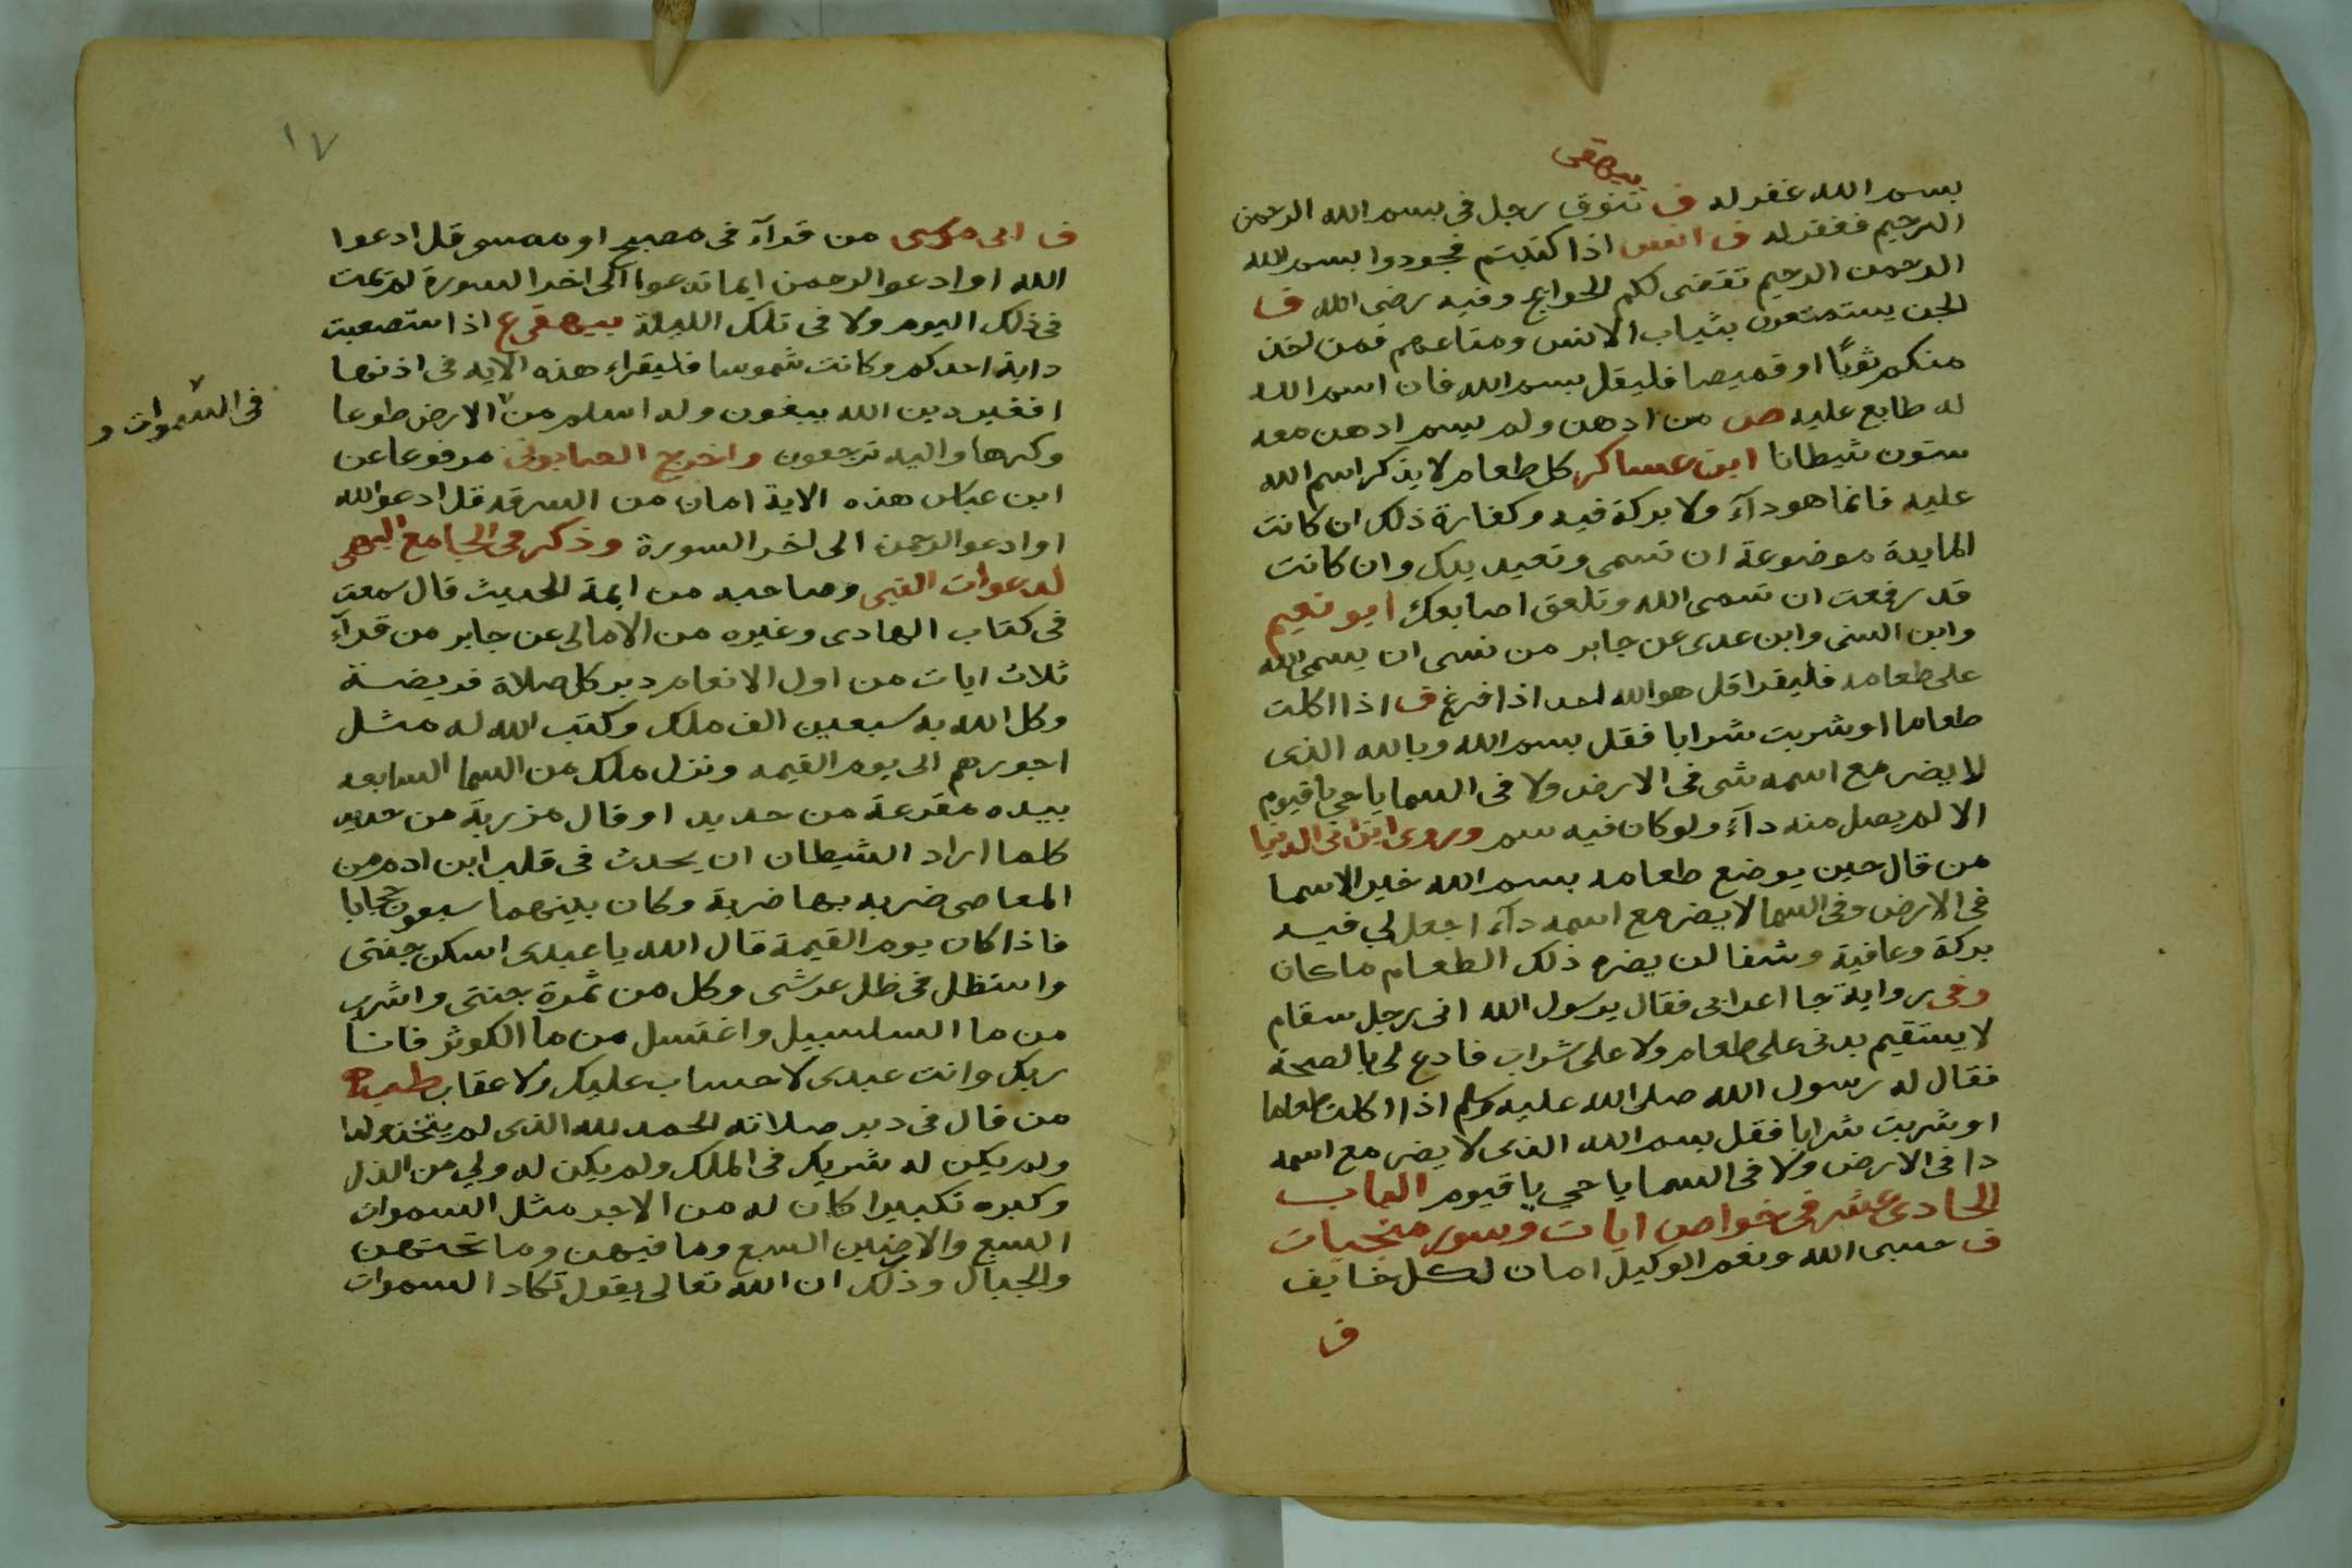 بيهقى
بسم الله غفر له ف تنوق رجل فى بسم الله الرحمن
الرحيم فغفر له ف انس اذا كتبتم فجودوا بسم الله
الرحمن الرحيم تقضى لكم الحوايج وفيه رضى الله ف
الجن يستمتعون بثياب الانس ومتاعهم فمن اخذ
منكم ثوبًا او قميصا فليقل بسم الله فان اسم الله
له طابع عليه ص من ادهن ولم يسم ادهن معه
ستون شيطانا ابن عساكر كل طعام لا يذكر اسم الله
عليه فانما هو دآء ولا بركة فيه وكفارة ذلك ان كانت
المايدة موضوعة ان تسمى وتعيد يدك وان كانت
قد رفعت ان تسمى الله وتلعق اصابعك ابو نعيم
وابن السنى وابن عدى عن جابر من نسى ان يسمى الله
على طعامه فليقرا قل هو الله احد اذا فرغ ف اذا اكلت
طعاما او شربت شرابا فقل بسم الله وبالله الذى
لا يضر مع اسمه شى فى الارض ولا فى السما يا حي يا قيوم
الا لم يصل منه دآء ولو كان فيه سم وروى ابن ابى الدنيا
من قال حين يوضع طعامه بسم الله خير الاسما
فى الارض وفى السما لا يضر مع اسمه دآء اجعل لي فيه
بركة وعافية وشفا لن يضره ذلك الطعام ما كان
وفى رواية جا اعرابى فقال يرسول الله انى رجل سقام
لا يستقيم بدنى على طعام ولا على شراب فادع لى بالصحة
فقال له رسول الله صلى الله عليه وسلم اذا اكلت طعاما
او شربت شرابا فقل بسم الله الذى لا يضر مع اسمه
دا فى الارض ولا فى السما يا حي يا قيوم الباب
الحادى عشر فى خواص ايات وسور منجيات
ف حسبى الله ونعم الوكيل امان لكل خايف
ف
١٧
ف ابى موسى من قرآء فى مصبح او ممسى قل ادعوا
الله او ادعوا الرحمن ايما تدعوا الى اخر السورة لم يمت
فى ذلك اليوم ولا فى تلك الليلة بيهقى ع اذا استصعبت
دابة احدكم وكانت شموسا فليقراء هذه الايه فى اذنها
افغير دين الله يبغون وله اسلم من الارض طوعا
فى السموات و
وكرها واليه ترجعون واخرج الصابونى مرفوعا عن
ابن عباس هذه الاية امان من السرقه قل ادعوا الله
او ادعوا الرحمن الى اخر السورة وذكر فى الجامع البهى
لدعوات النبى وصاحبه من ايمة الحديث قال سمعت
فى كتاب الهادى وغيره من الامالى عن جابر من قرآء
ثلاث ايات من اول الانعام دبر كل صلاة فريضة
وكل الله به سبعين الف ملك وكتب الله له مثل
اجورهم الى يوم القيمه ونزل ملك من السما السابعه
بيده مقرعة من حديد او قال مزربة من حديد
كلما اراد الشيطان ان يحدث فى قلب ابن ادم من
المعاصى ضربه بها ضربة وكان بينهما سبعون حجابا
فاذا كان يوم القيمة قال الله يا عبدى اسكن جنتى
واستظل فى ظل عرشى وكل من ثمرة جنتى واشرب
من ما السلسبيل واغتسل من ما الكوثر فانا
ربك وانت عبدى لا حساب عليك ولا عقاب
من قال فى دبر صلاته الحمد لله الذى لم يتخذ ولدا
ولم يكن له شريك فى الملك ولم يكن له ولي من الذل
وكبره تكبيرا كان له من الاجر مثل السموات
السبع والارضين السبع وما فيهن وما تحتهن
والجبال وذلك ان الله تعالى يقول تكاد السموات